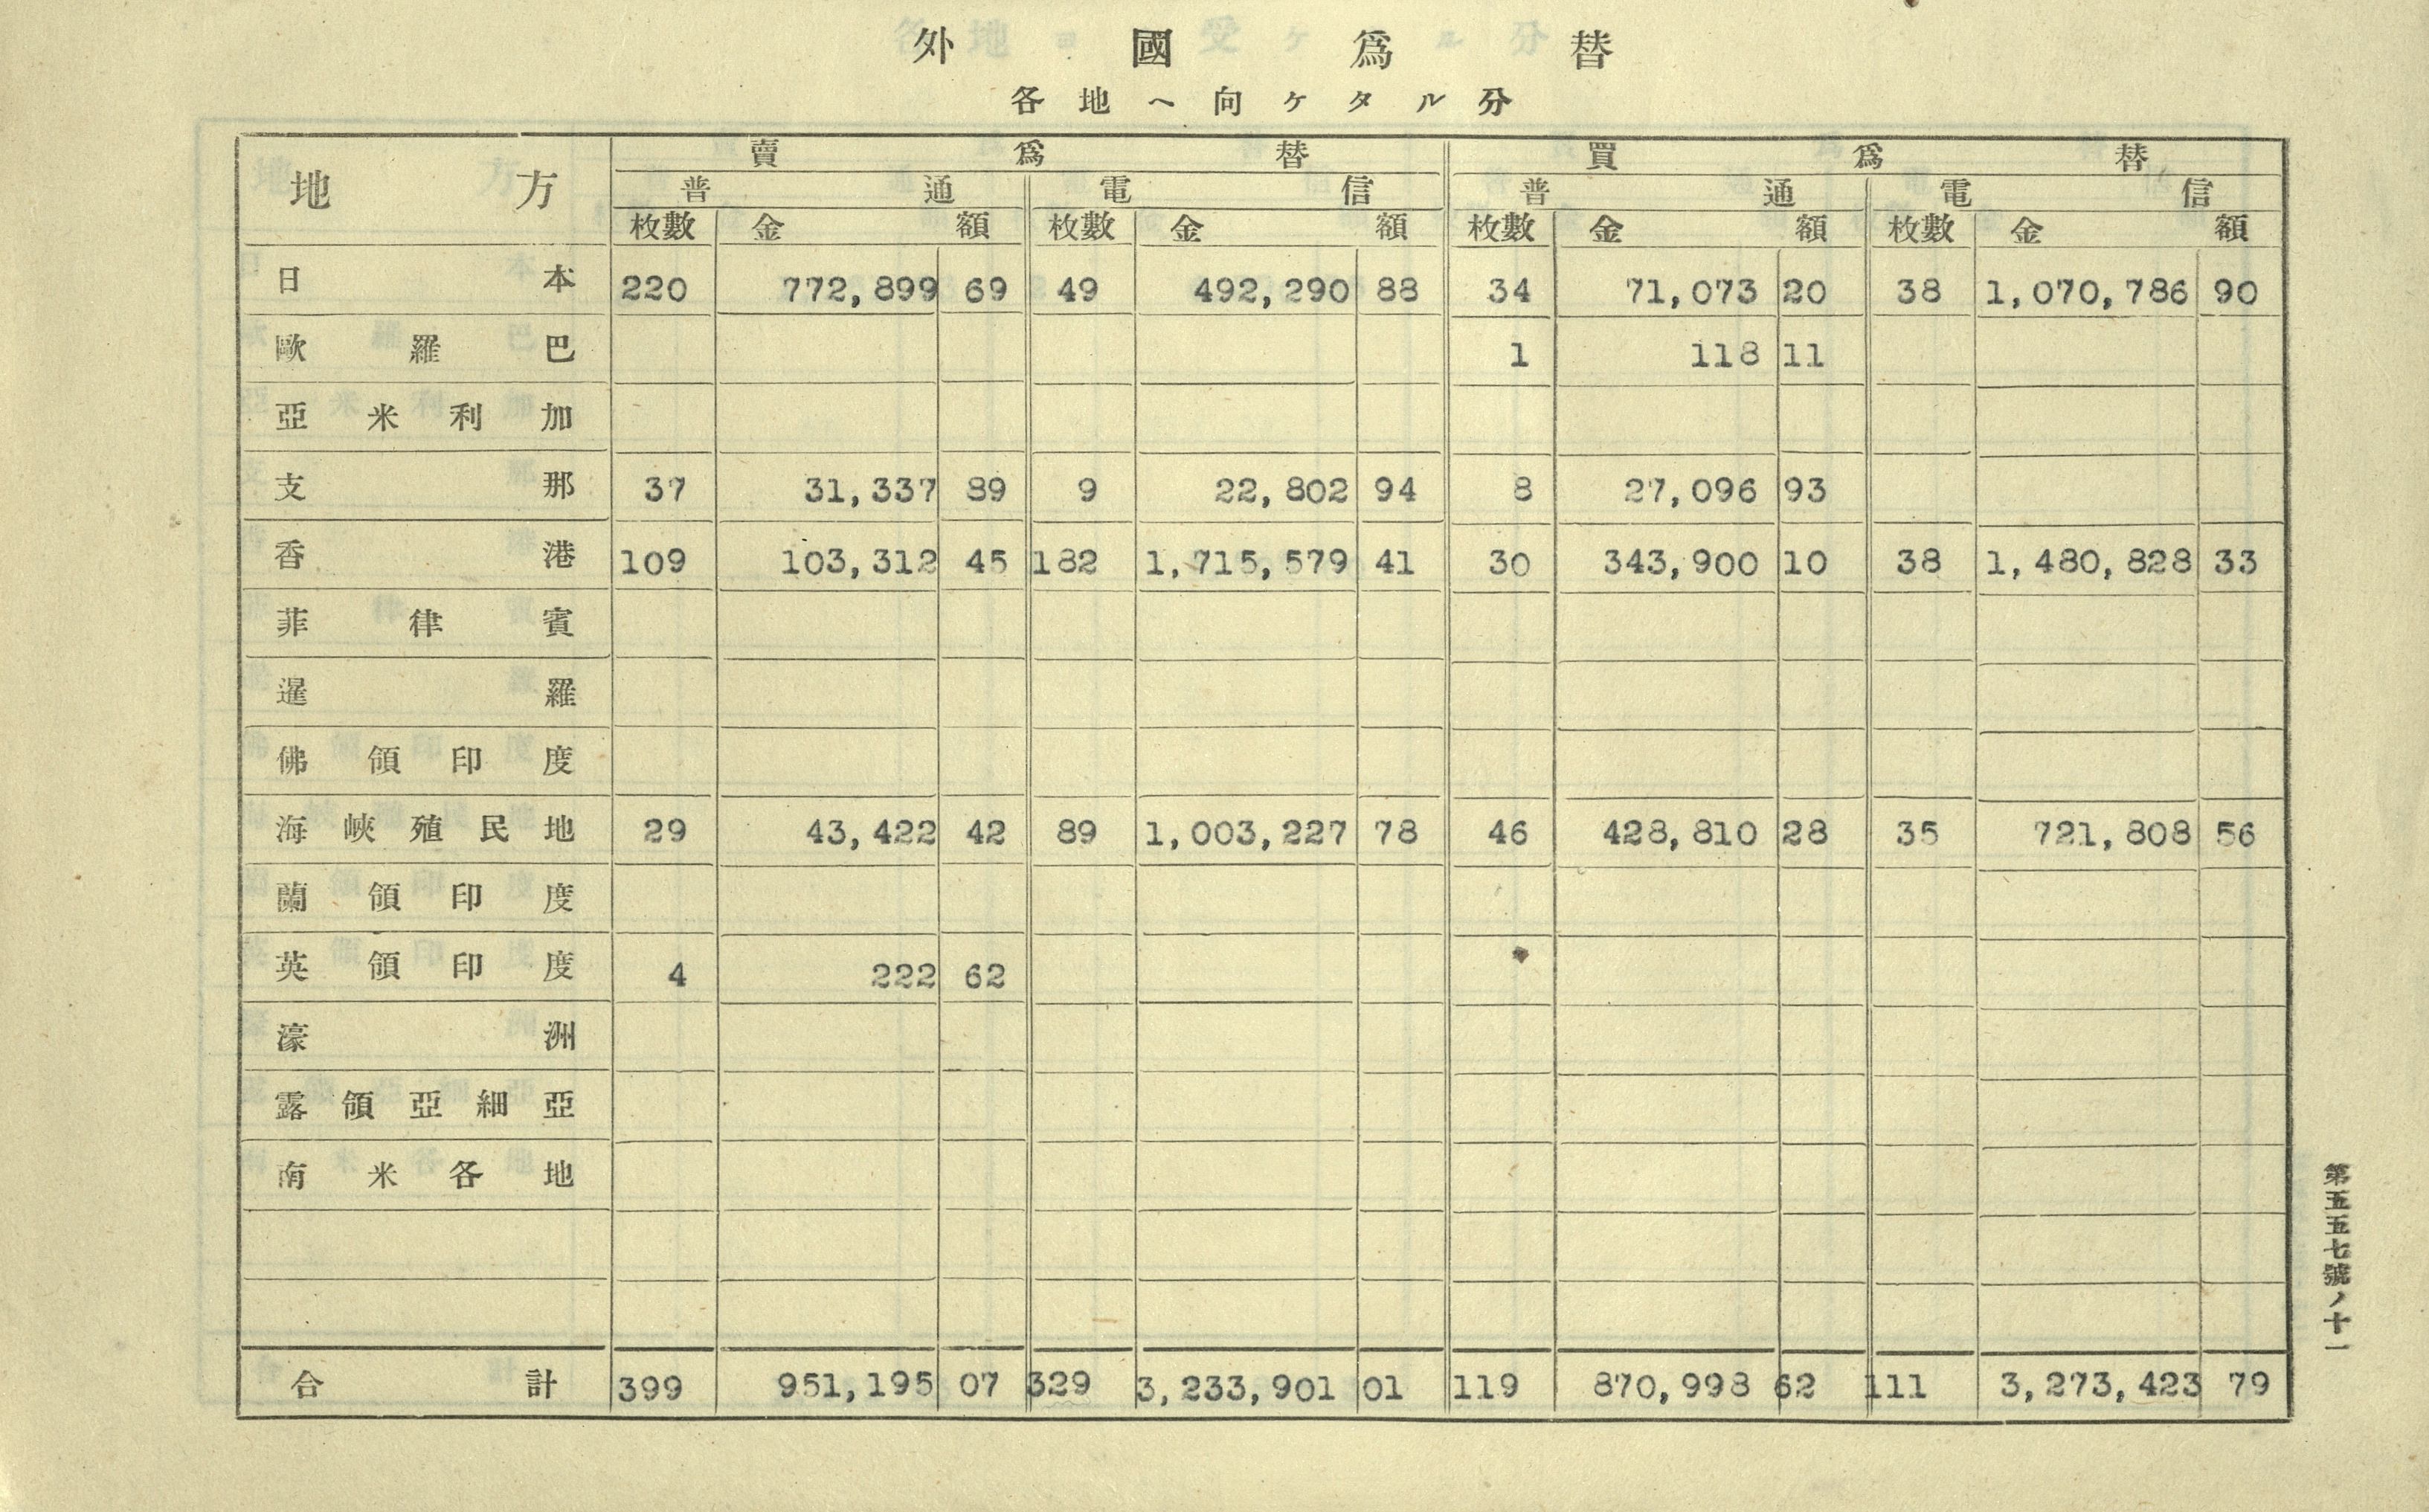 外國爲替
各地ヘ向ケタル分
地方 賣爲替 買爲替
普通 電信 普通 電信
枚數 金額 枚數 金額 枚數 金額 枚數 金額
日本 220 772,899 69 49 492,290 88 34 71,073 20 38 1,070,786 90
歐羅巴 1 118 11
亞米利加
支那 37 31,337 89 9 22,802 94 8 27,096 93
香港 109 103,312 45 182 1,715,579 41 30 343,900 10 38 1,480,828 33
菲律賓
暹羅
佛領印度
海峽殖民地 29 43,422 42 89 1,003,227 78 46 428,810 28 35 721,808 56
蘭領印度
英領印度 4 222 62
濠洲
露領亞細亞
南米各地
合計 399 951,195 07 329 3,233,901 01 119 870,998 62 111 3,273,423 79
第五五七號ノ十一